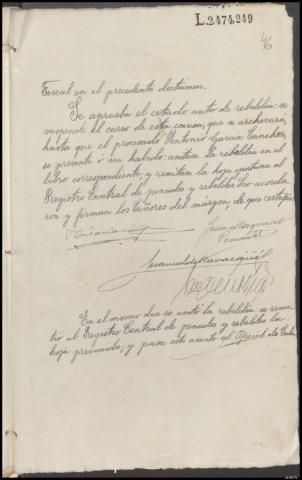 L.2474.249
46
Fiscal en el precedente dictámen.
Se aprueba el citado auto de rebeldia: se
suspende el curso de esta causa, que se archivará,
hasta que el procesado Antonio Garcia Sanchez,
se presente ó sea habido: anótese la rebeldia en el
libro correspondiente, y remítase la hoja oportuna al
Registro Central de penados y rebeldes. Lo acorda
ron y firman los Señores del márgen, de que certifico
En el mismo dia se anotó la rebeldia, se remi
tió al Registro Central de penados y rebeldes la
hoja prevenida; y pasa este asunto al de Sala